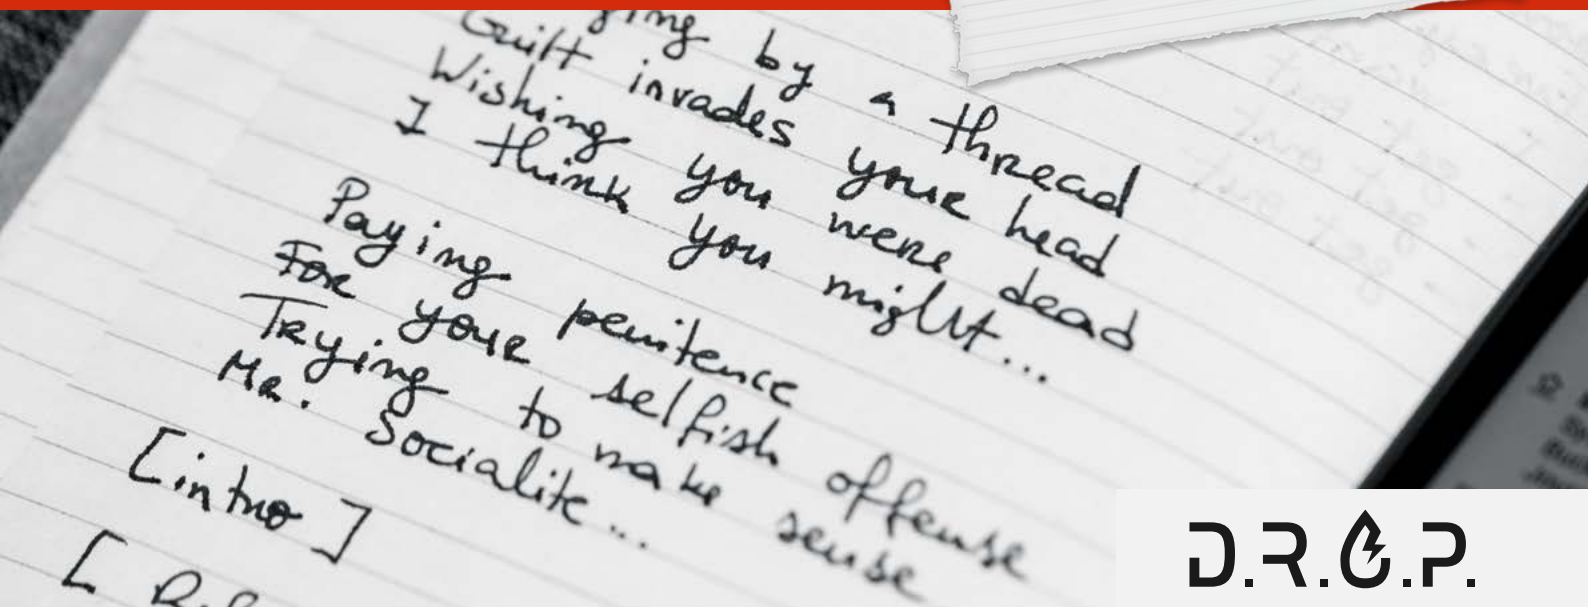 by a thread
Guilt invades your head
Wishing you were dead
I think you might...
Paying penitence
For your selfish offense
Trying to make sense
Mr. Socialite...
[intro]
[
D.R.O.P.